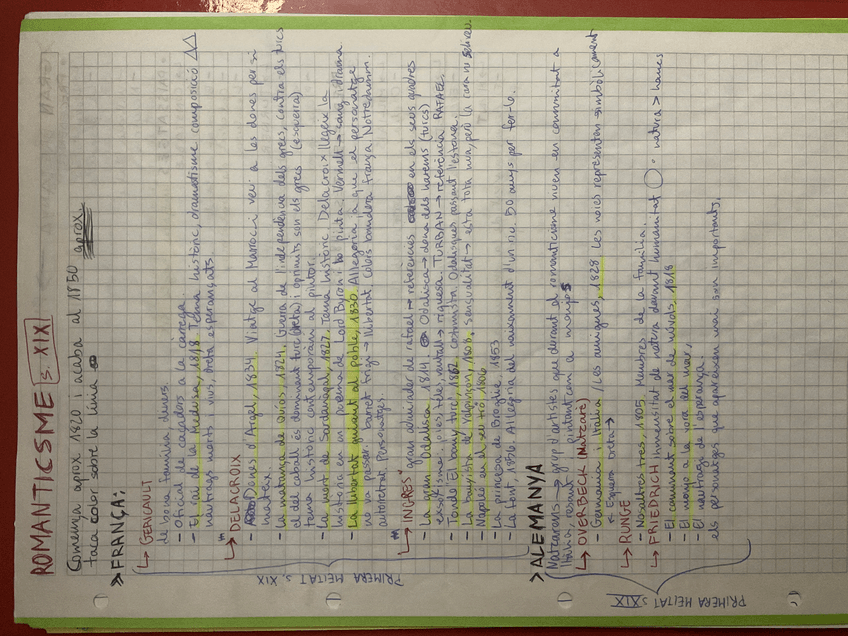 ROMANTICSME S. XIX
Comença aprox 1820 i acaba al 1850 aprox.
taca color sobre la línia
> FRANÇA:
↳ GERICAULT
de bona família diners.
- Oficial de caçadors a la càrrega.
- El rai de la Medusa, 1818 Tema històric, dramatisme composició △△
nàufrags morts, vius, dreta esperançats
↳ DELACROIX
- Dones d'Argel, 1834. Viatge al Marroci veu a les dones per si
mateix.
- La matança de Quios, 1824. Guerra de l'independència dels grecs, contra els turcs
el del caball és dominant turc (dreta) i oprimits son els grecs (esquerra)
tema històric contemporani al pintor.
- La mort de Sardanapal, 1827. Tema històric. Delacroix llegeix la
història en un poema de Lord Byron i ho pinta. Vermell → sang i drama
- La llibertat guiant al poble, 1830. Allegoria ja que el personatge
no va passar. barret frigi → llibertat, colors bandera frança Notredamm.
autoretrat. Personatges.
↳ INGRES gran admirador de rafael → referències en els seus quadres
- La gran Odalisca, 1814. Odalisca → dona dels harems (turcs)
exotisme: joies, teles, ventall → riquesa. TURBAN → referència RAFAEL.
- Tondo El bany turc, 1862. costumista. Odalisques passant l'estona.
- La banyista de Valpinçon, 1808. sensualitat → esta tota nua, però la cara no se li veu.
- Napoleó en el seu tro, 1806
- La princesa de Broglie, 1853
- La font, 1856. Allegoria del naixement d'un riu. 50 anys per fer-lo.
PRIMERA MEITAT S. XIX
> ALEMANYA
Natzarens → grup d'artistes que durant al romanticisme viuen en comunitat a
Itàlia, resant pintant com a monjos
↳ OVERBECK (Natzaré)
- Germania i Itàlia / Les amigues, 1828 Les noies representen simbòlicament
← Esquerra dreta →
↳ RUNGE
- Nosaltres tres, 1805. Membres de la família.
↳ FRIEDRICH Immensitat de natura davant humanitat ◯ = natura > homes
- El caminant sobre el mar de núvols, 1818
- El monjo a la vora del mar,
- El naufragi de l'esperança.
els personatges que apareixen man son importants.
PRIMERA MEITAT S XIX